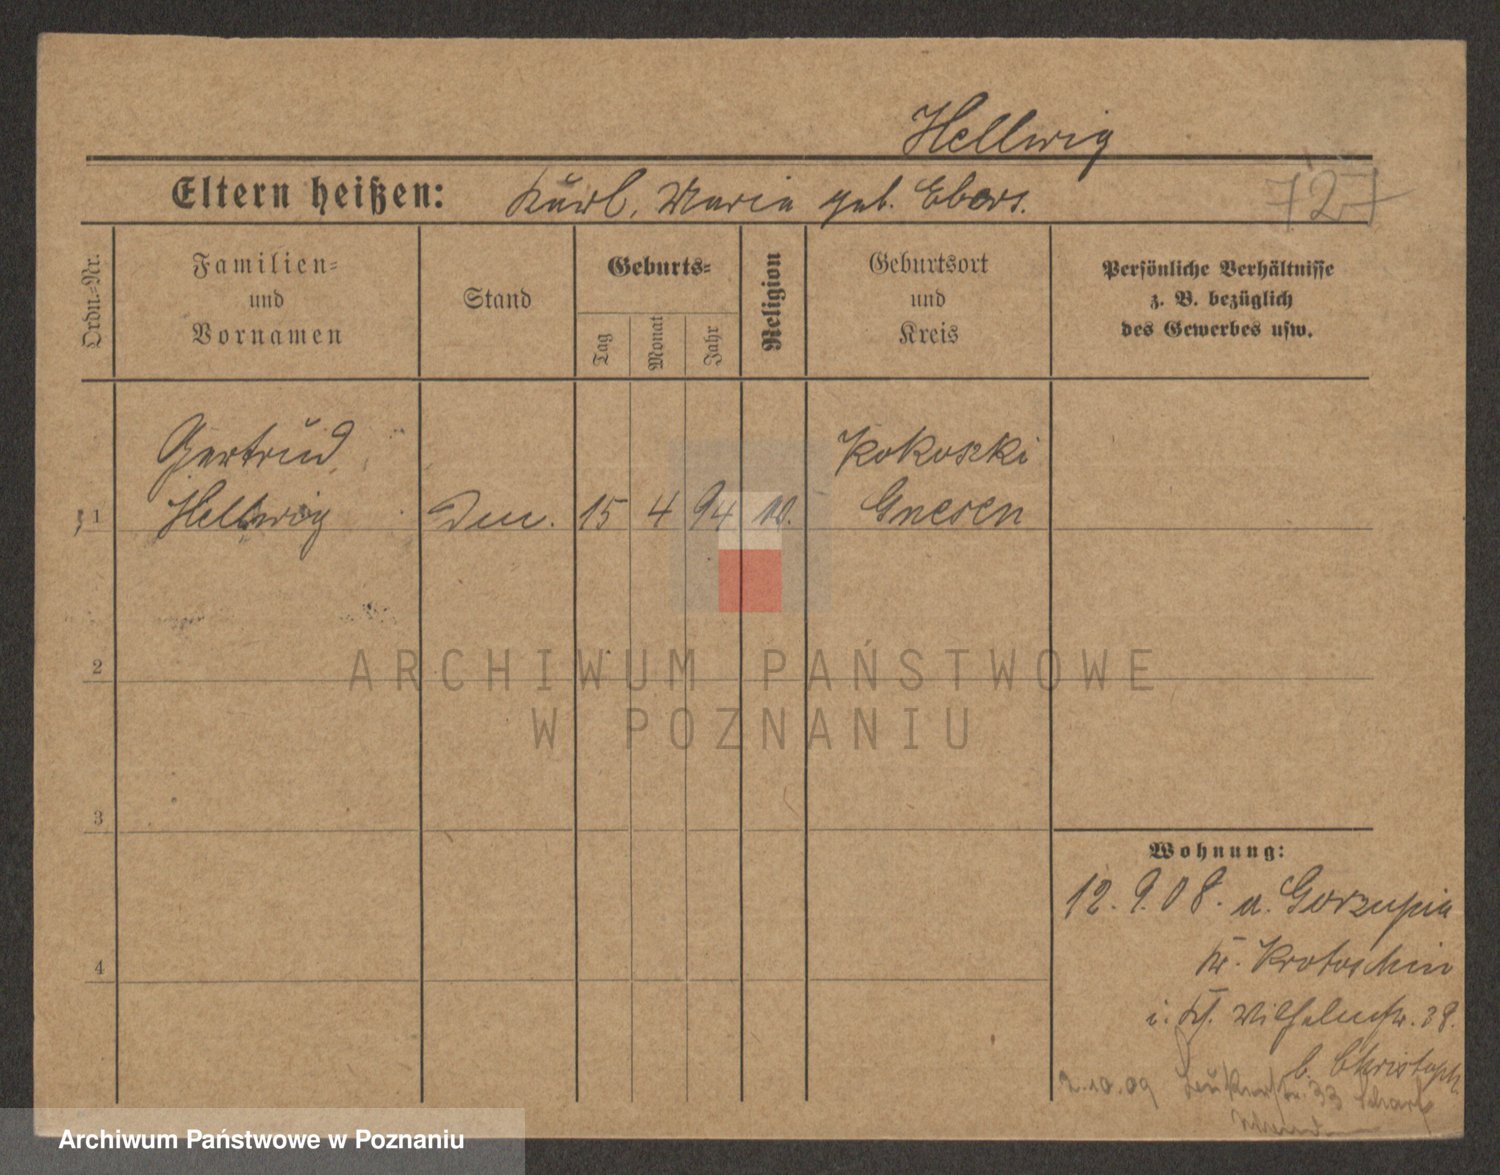 Hellwig
Eltern heißen: Karl, Maria geb. Ebers.
727
Ordn.-Nr.
Familien-
und
Vornamen
Stand
Geburts-
Tag
Monat
Jahr
Religion
Geburtsort
und
Kreis
Persönliche Verhältnisse
z. B. bezüglich
des Gewerbes usw.
Gertrud
Kokoszki
1 Hellwig 15 4 94 Gnesen
2
ARCHIWUM PAŃSTWOWE
W POZNANIU
3
Wohnung:
12. 9. 08. a. Gorzupia
4
Kr. Krotoschin
Wilhelmstr. 38.
b. Christoph.
2.10.09 33
Archiwum Państwowe w Poznaniu